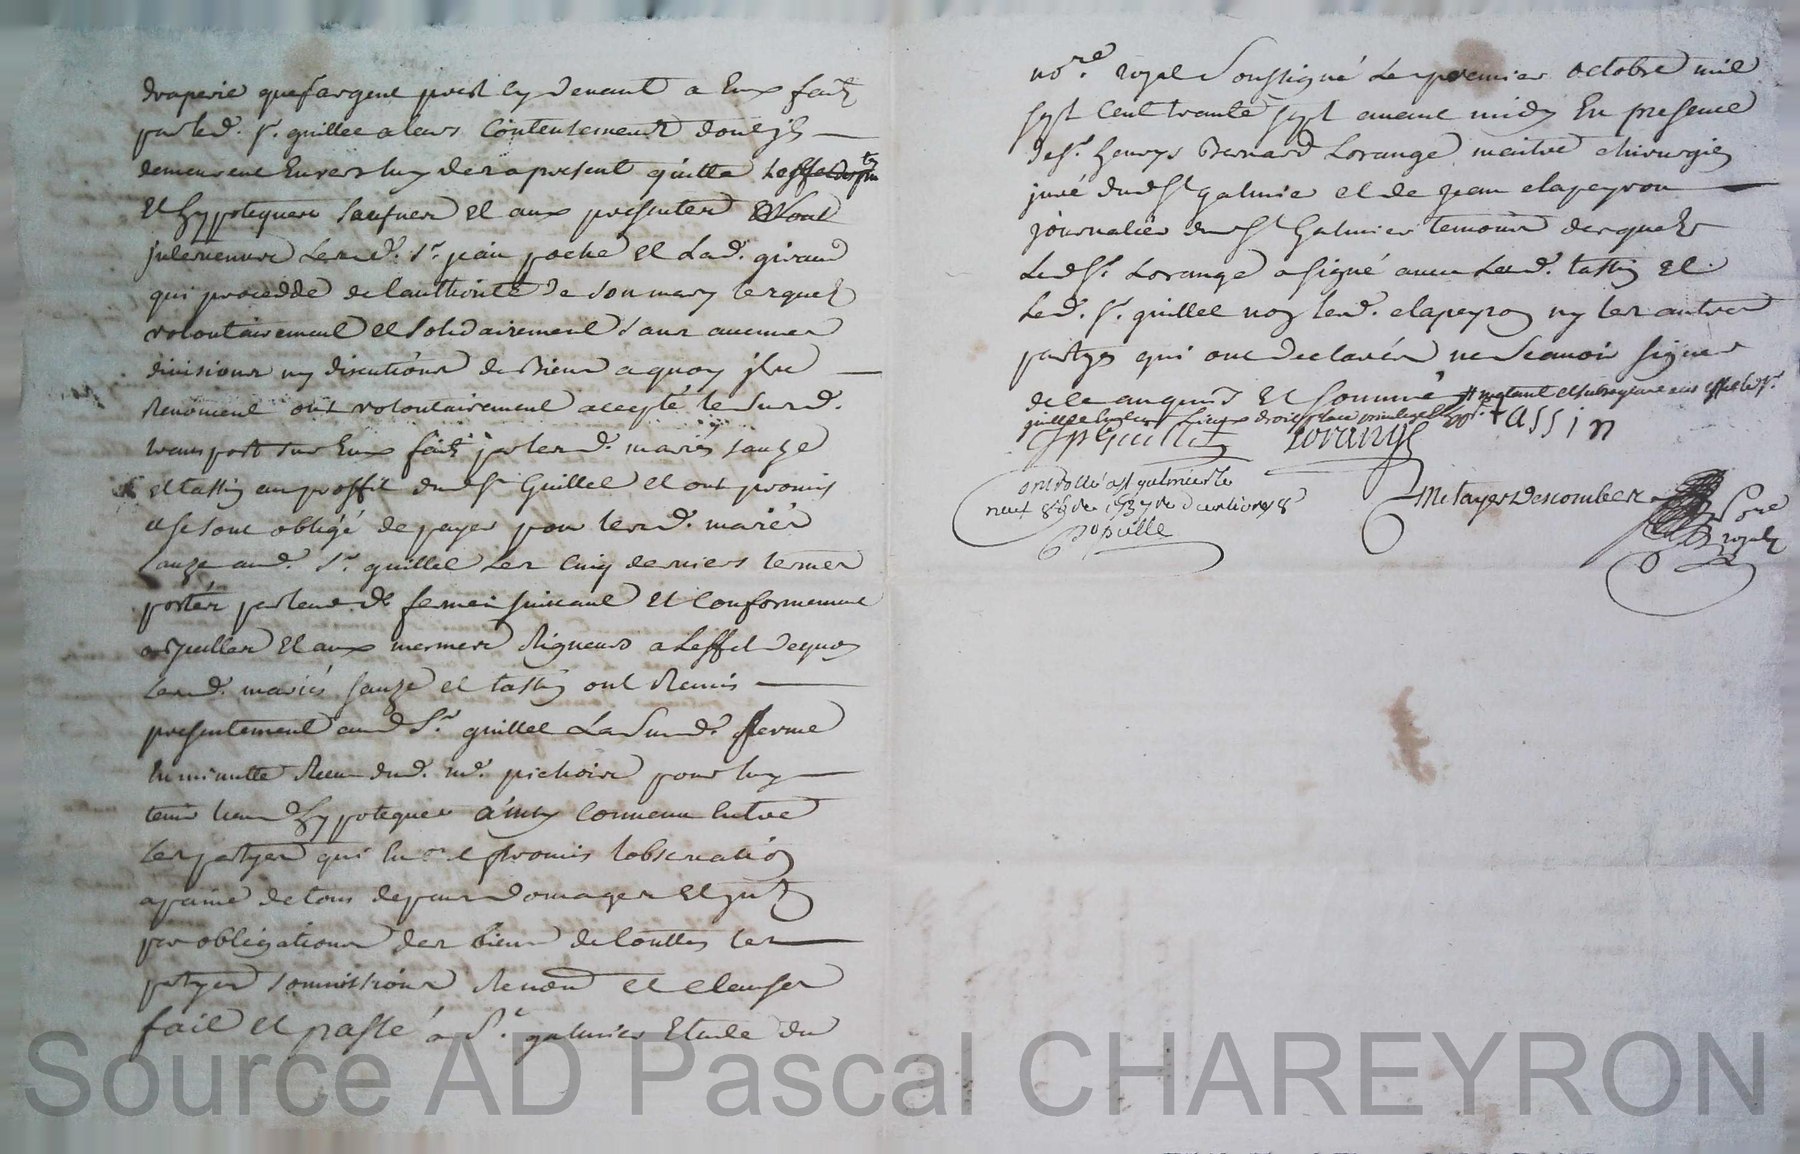 draperie que largent prest cy devant a Eux fait
par led. Sr. guillet a leurs Contentement dont ils
demeurent Envers luy des a present quitte
Et hypoteques sauf neu Et aux presentes sont
intervenus lesd. Sr. jean poche Et Lad. giraud
qui procedde de lauthorité de son mary lesquels
volontairement et solidairement sans aucunes
divisions ny discutions de Biens a quoy ils
Renoncent ont volontairement accepté le susd.
transport sur Eux fait par lesd. mariés sauze
et tassin au proffit dud Sr Guillet et ont promis
et se sont obligé de payer pour lesd. mariés
sauze aud. Sr. guillet Les Cinq derniers termes
portés par lad. de ferme suivant Et Conformement
a Icelles Et aux mesmes Rigueurs a Leffet dequoy
Lesd. mariés sauze et tassin ont Remis
presentement aud Sr. guillet La susd. ferme
En minutte Receu dud. me. pichoire pour luy
tenir lieu d'hypoteques ainsy Convenu Entre
Les partyes qui En ont promis lobservation
a peine de tous depens domages Et intts
par obligations des biens de touttes les
partyes soumissions Renon et clauses
fait Et passé a St. galmier Etude du
nore. royal Soussigné Le premier octobre mil
sept Cent trante sept avant midy En presence
de sr. henrys Bernard Lorange maitre chirurgien
juré dud St galmier et de jean clapeyron
journalier dud St Galmier temoins desquels
Led Sr. Lorange a signé avec Lad. tassin et
Led. Sr. guillet non led. clapeyron ny les autres
partyes qui ont declarés ne scavoir signer
de ce enquis Et sommé # metant et subrogeant aux effet led Sr.
guillet lieux droit place privilege hypot.
Guillet Lorange tassin
Controllé a St galmier le
neuf 8bre 1737 Re douze livres 8
Metayer Descombes Nore
royal
Source AD Pascal CHAREYRON